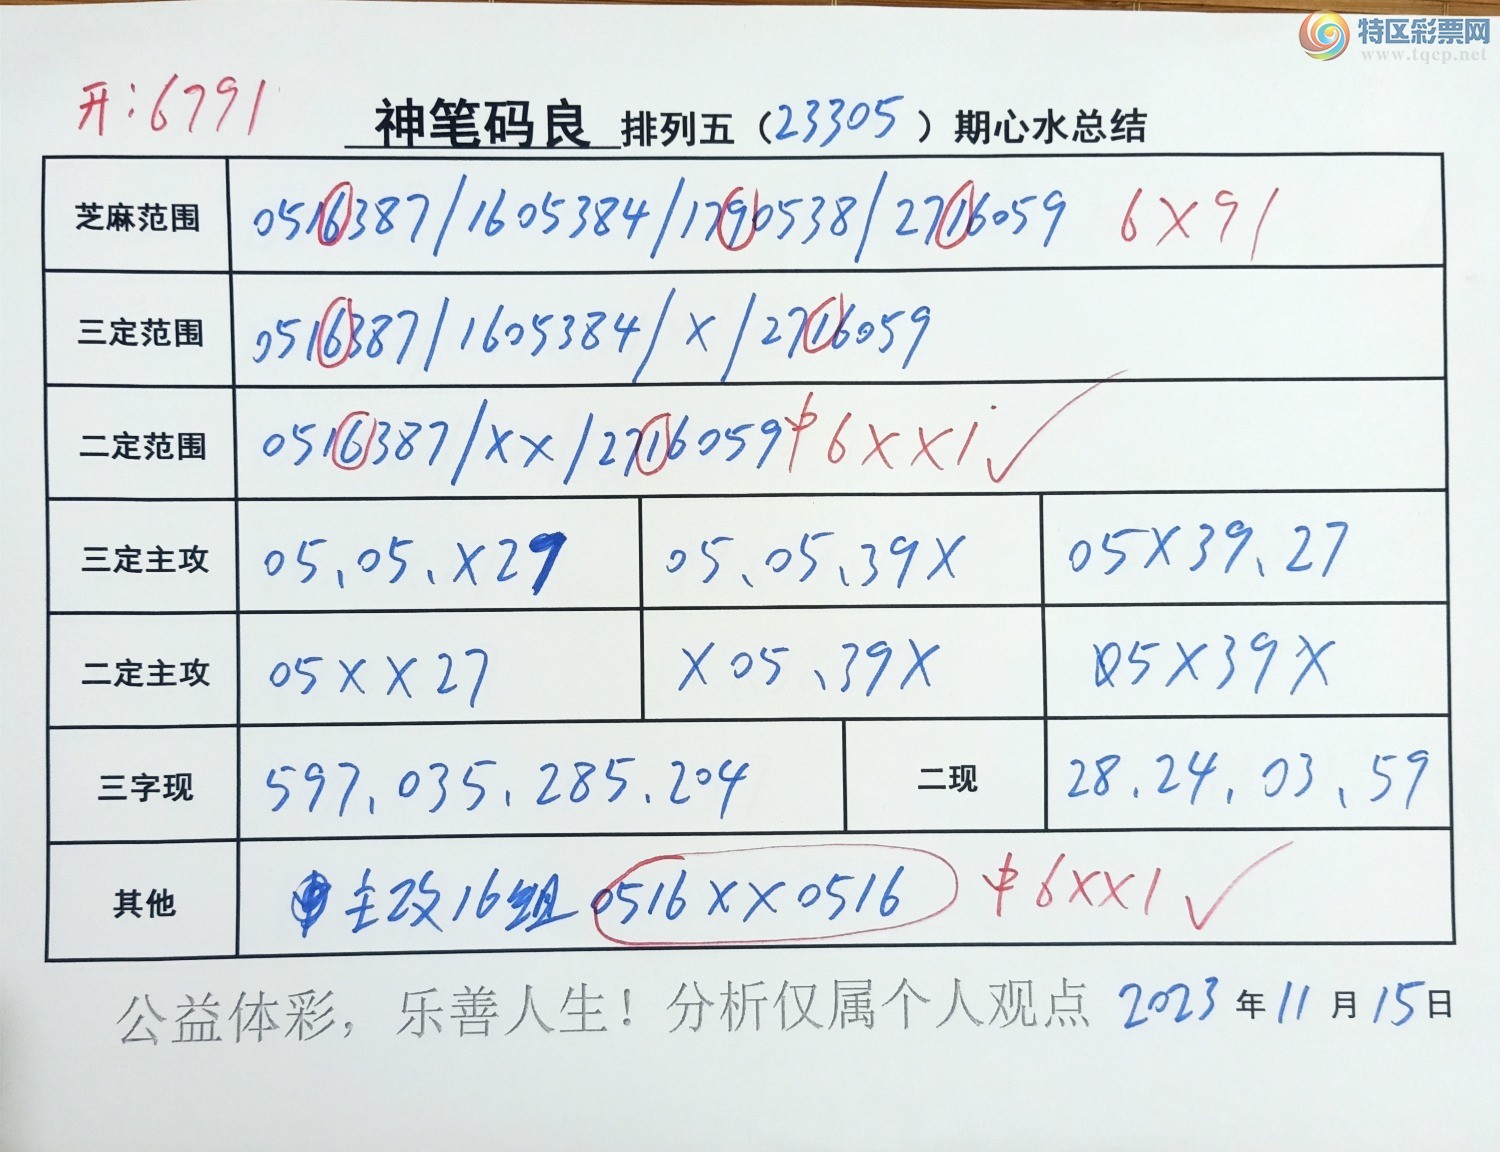 特区彩票网
www.tqcp.net
开:6791
神笔码良 排列五（23305）期心水总结
芝麻范围 0516387/1605384/1790538/2716059 6X91
三定范围 0516387/1605384/X/2716059
二定范围 0516387/XX/2716059 中6XX1 ✓
三定主攻 05、05、X29 05、05、39X 05X39、27
二定主攻 05XX27 X05、39X 05X39X
三字现 597、035、285、204 二现 28、24、03、59
其他 主攻16组 0516XX0516 中6XX1 ✓
公益体彩，乐善人生！分析仅属个人观点 2023年11月15日